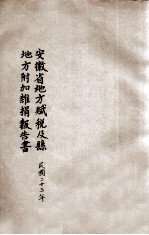 安徽省地方賦稅及縣
地方附加雜捐報告書
民國二十三年